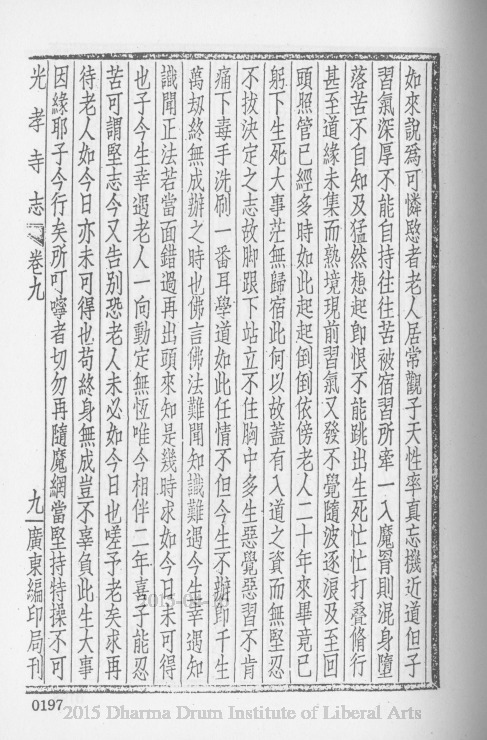 如來說爲可憐愍者老人居常觀子天性率真忘機近道但子
習氣深厚不能自持往往苦被宿習所牽一入魔罥則混身墮
落苦不自知及猛然想起卽恨不能跳出生死忙忙打疊脩行
甚至道緣未集而熟境現前習氣又發不覺隨波逐浪及至回
頭照管已經多時如此起起倒倒依傍老人二十年來畢竟已
躬下生死大事茫無歸宿此何以故蓋有入道之資而無堅忍
不拔決定之志故脚跟下站立不住胸中多生惡覺惡習不肯
痛下毒手洗刷一番耳學道如此任情不但今生不辦卽千生
萬刼終無成辦之時也佛言佛法難聞知識難遇今生幸遇知
識聞正法若當面錯過再出頭來知是幾時求如今日未可得
也子今生幸遇老人一向動定無恆唯今相伴二年喜子能忍
苦可謂堅志今又告別恐老人未必如今日也嗟予老矣求再
待老人如今日亦未可得也苟終身無成豈不辜負此生大事
因緣耶子今行矣所可嚀者切勿再隨魔網當堅持特操不可
光孝寺志 卷九 九 廣東編印局刊
0197
2015 Dharma Drum Institute of Liberal Arts